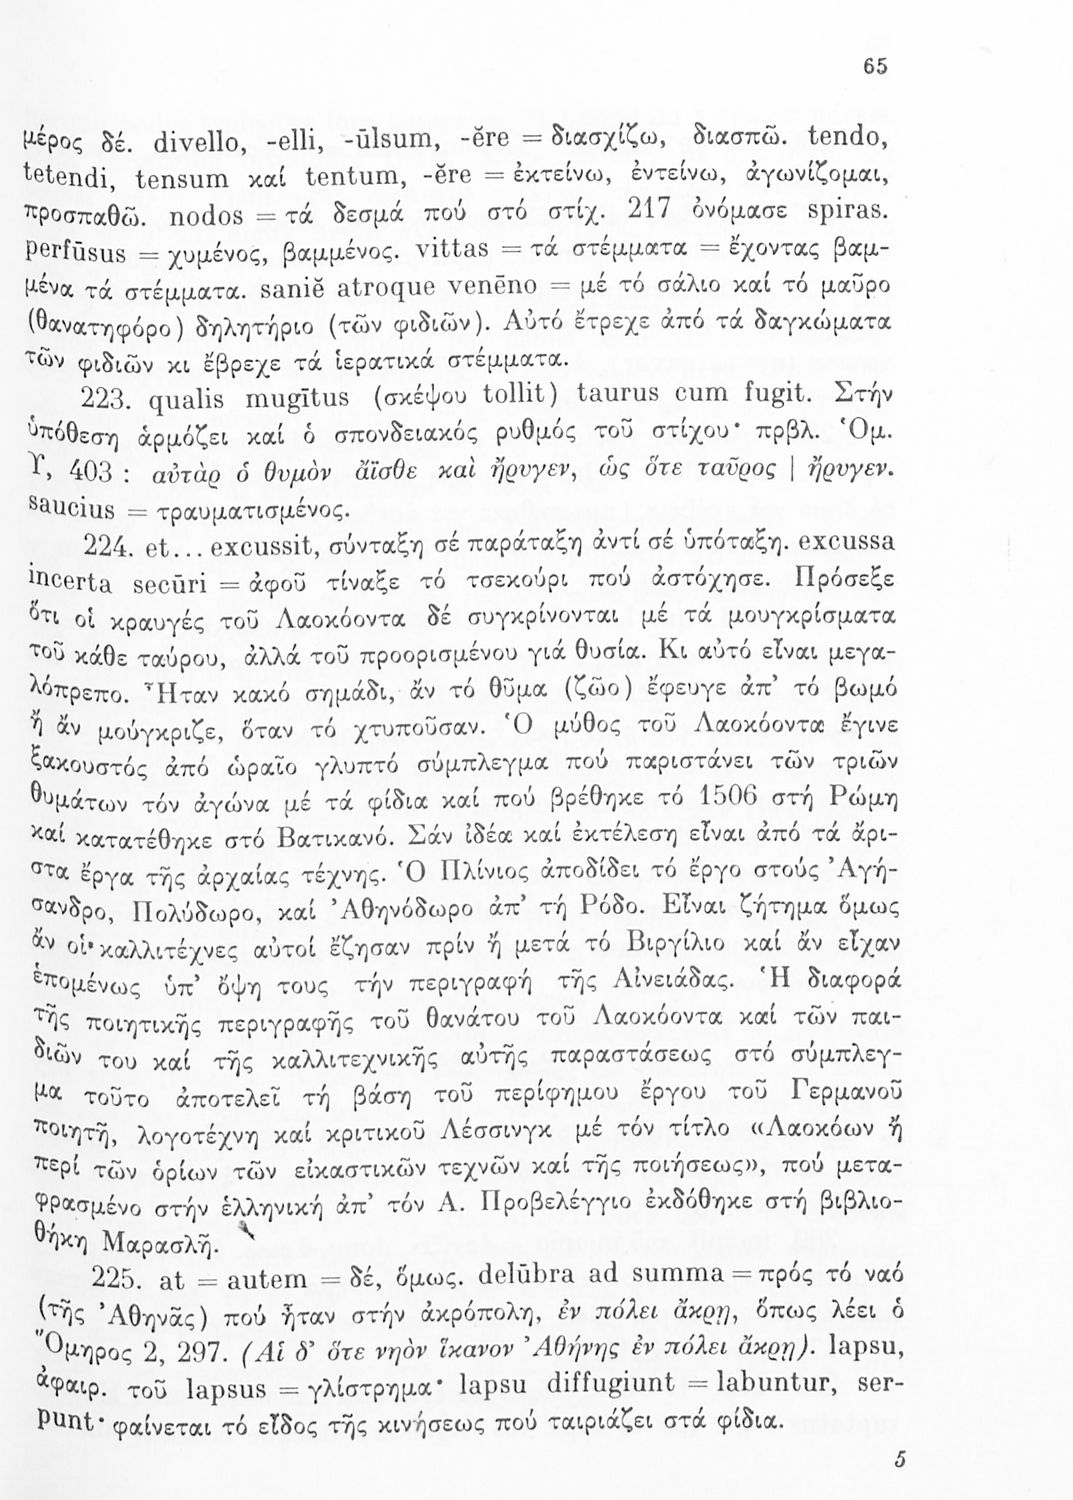 65
μέρος δέ. divello, -elli, -ūlsum, -ĕre = διασχίζω, διασπῶ. tendo,
tetendi, tensum καί tentum, -ĕre = ἐκτείνω, ἐντείνω, ἀγωνίζομαι,
προσπαθῶ. nodos = τά δεσμά πού στό στίχ. 217 ὀνόμασε spiras.
perfūsus = χυμένος, βαμμένος. vittas = τά στέμματα = ἔχοντας βαμ-
μένα τά στέμματα. saniĕ atroque venēno = μέ τό σάλιο καί τό μαῦρο
(θανατηφόρο) δηλητήριο (τῶν φιδιῶν). Αὐτό ἔτρεχε ἀπό τά δαγκώματα
τῶν φιδιῶν κι ἔβρεχε τά ἱερατικά στέμματα.
223. qualis mugītus (σκέψου tollit) taurus cum fugit. Στήν
ὑπόθεση ἁρμόζει καί ὁ σπονδειακός ρυθμός τοῦ στίχου· πρβλ. Ὁμ.
Υ, 403 : αὐτὰρ ὁ θυμὸν ἄϊσθε καὶ ἤρυγεν, ὡς ὅτε ταῦρος | ἤρυγεν.
saucius = τραυματισμένος.
224. et... excussit, σύνταξη σέ παράταξη ἀντί σέ ὑπόταξη. excussa
incerta secūri = ἀφοῦ τίναξε τό τσεκούρι πού ἀστόχησε. Πρόσεξε
ὅτι οἱ κραυγές τοῦ Λαοκόοντα δέ συγκρίνονται μέ τά μουγκρίσματα
τοῦ κάθε ταύρου, ἀλλά τοῦ προορισμένου γιά θυσία. Κι αὐτό εἶναι μεγα-
λόπρεπο. Ἦταν κακό σημάδι, ἄν τό θῦμα (ζῶο) ἔφευγε ἀπ’ τό βωμό
ἤ ἄν μούγκριζε, ὅταν τό χτυποῦσαν. Ὁ μύθος τοῦ Λαοκόοντα ἔγινε
ξακουστός ἀπό ὡραῖο γλυπτό σύμπλεγμα πού παριστάνει τῶν τριῶν
θυμάτων τόν ἀγώνα μέ τά φίδια καί πού βρέθηκε τό 1506 στή Ρώμη
καί κατατέθηκε στό Βατικανό. Σάν ἰδέα καί ἐκτέλεση εἶναι ἀπό τά ἄρι-
στα ἔργα τῆς ἀρχαίας τέχνης. Ὁ Πλίνιος ἀποδίδει τό ἔργο στούς Ἀγή-
σανδρο, Πολύδωρο, καί Ἀθηνόδωρο ἀπ’ τή Ρόδο. Εἶναι ζήτημα ὅμως
ἄν οἱ καλλιτέχνες αὐτοί ἔζησαν πρίν ἤ μετά τό Βιργίλιο καί ἄν εἶχαν
ἑπομένως ὑπ’ ὄψη τους τήν περιγραφή τῆς Αἰνειάδας. Ἡ διαφορά
τῆς ποιητικῆς περιγραφῆς τοῦ θανάτου τοῦ Λαοκόοντα καί τῶν παι-
διῶν του καί τῆς καλλιτεχνικῆς αὐτῆς παραστάσεως στό σύμπλεγ-
μα τοῦτο ἀποτελεῖ τή βάση τοῦ περίφημου ἔργου τοῦ Γερμανοῦ
ποιητῆ, λογοτέχνη καί κριτικοῦ Λέσσινγκ μέ τόν τίτλο «Λαοκόων ἤ
περί τῶν ὁρίων τῶν εἰκαστικῶν τεχνῶν καί τῆς ποιήσεως», πού μετα-
φρασμένο στήν ἑλληνική ἀπ’ τόν Α. Προβελέγγιο ἐκδόθηκε στή βιβλιο-
θήκη Μαρασλῆ.
225. at = autem = δέ, ὅμως. delūbra ad summa = πρός τό ναό
(τῆς Ἀθηνᾶς) πού ἦταν στήν ἀκρόπολη, ἐν πόλει ἄκρῃ, ὅπως λέει ὁ
Ὅμηρος 2, 297. (Αἱ δ’ ὅτε νηὸν ἵκανον Ἀθήνης ἐν πόλει ἄκρῃ). lapsu,
ἀφαιρ. τοῦ lapsus = γλίστρημα· lapsu diffugiunt = labuntur, ser-
punt· φαίνεται τό εἶδος τῆς κινήσεως πού ταιριάζει στά φίδια.
5